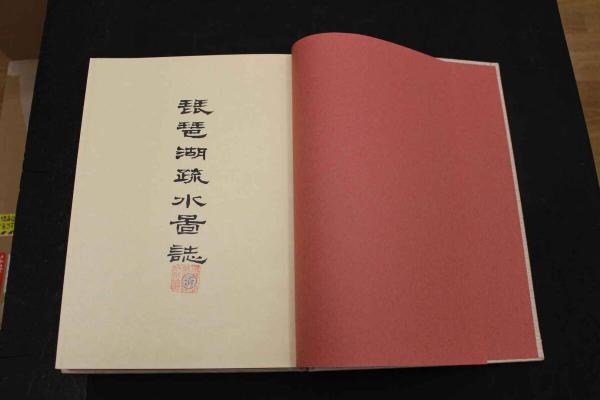 琵琶湖疏水圖誌